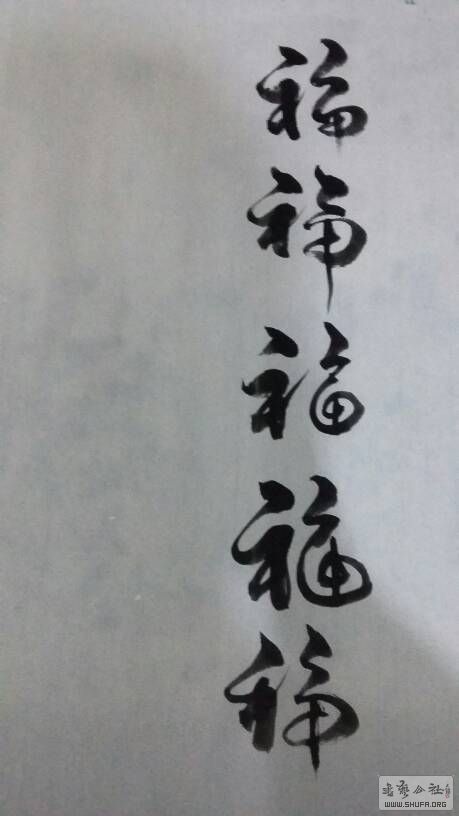 福福福福福
WWW.SHUFA.ORG